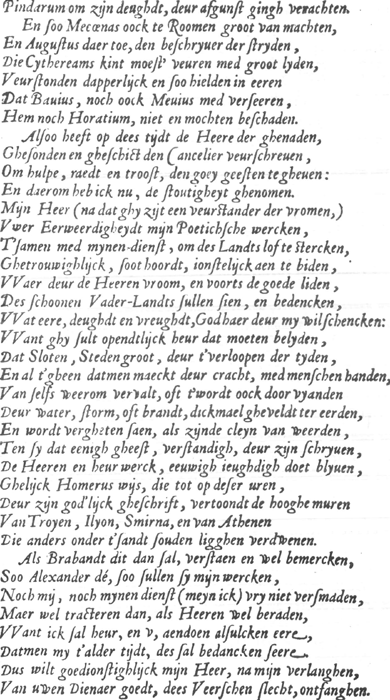 Pindarum om zijn deughdt, deur afgunst gingh verachten.
En soo Mecœnas oock te Roomen groot van machten,
En Augustus daer toe, den beschryuer der stryden,
Die Cythereams kint moest' veuren med groot lyden,
Veurstonden dapperlijck en soo hielden in eeren
Dat Bauius, noch oock Meuius med verseeren,
Hem noch Horatium, niet en mochten beschaden.
Alsoo heeft op dees tijdt de Heere der ghenaden,
Ghesonden en gheschict den Cancelier veurschreuen,
Om hulpe, raedt en troost, den goey geesten te gheuen:
En daerom heb ick nu, de stoutigheyt ghenomen.
Mijn Heer (na dat ghy zijt een veurstander der vromen,)
Vwer Eerweerdigheydt mijn Poetichsche wercken,
T'samen med mynen-dienst, om des Landts lof te stercken,
Ghetrouwighlijck, soot hoordt, ionstelijck aen te biden,
VVaer deur de Heeren vroom, en voorts de goede liden,
Des schoonen Vader-Landts sullen sien, en bedencken,
VVat eere, deughdt en vreughdt, God haer deur my wil schencken:
VVant ghy sult opendtlijck heur dat moeten belyden,
Dat Sloten, Steden groot, deur t'verloopen der tyden,
En al t'gheen datmen maeckt deur cracht, med menschen banden,
Van selfs weerom vervalt, oft t'wordt oock door vyanden
Deur water, storm, oft brandt, dickmael gheveldt ter eerden,
En wordt vergheten saen, als zijnde cleyn van weerden,
Ten sy dat eenigh gheest, verstandigh, deur zijn schryuen,
De Heeren en heur werck, eeuwigh ieughdigh doet blyuen,
Ghelijck Homerus wijs, die tot op deser uren,
Deur zijn god'lijck gheschrift, vertoondt de hooghe muren
Van Troyen, Ilyon, Smirna, en van Athenen
Die anders onder t'sandt souden ligghen verdwenen.
Als Brabandt dit dan sal, verstaen en wel bemercken,
Soo Alexander dé, soo sullen sy mijn wercken,
Noch mij, noch mynen dienst (meyn ick) vry niet versmaden,
Maer wel tracteren dan, als Heeren wel beraden,
VVant ick sal heur, en v, aendoen alsulcken eere,
Datmen my t'alder tijdt, des sal bedancken seere.
Dus wilt goedionstighlijck mijn Heer, na mijn verlanghen,
Van uwen Dienaer goedt, dees Veerschen slecht, ontfanghen.